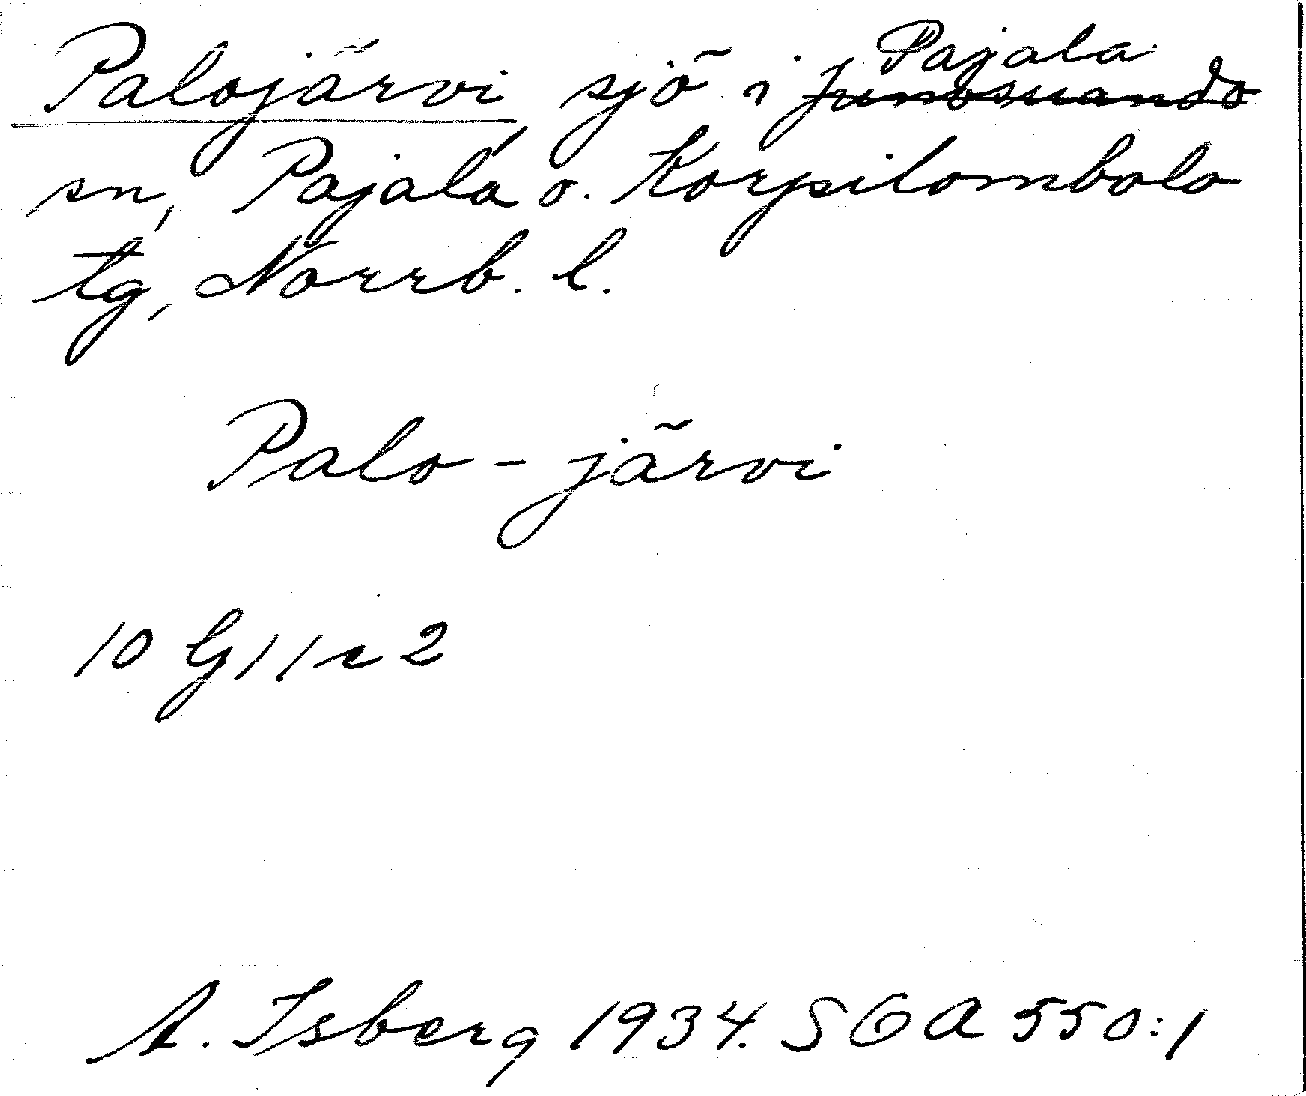 Palojärvi sjö i Junosuando Pajala
sn, Pajala o. Korpilombolo
tg, Norrb. l.
Palo-järvi
10 G 11 c 2
A. Isberg 1934. SOA 550:1